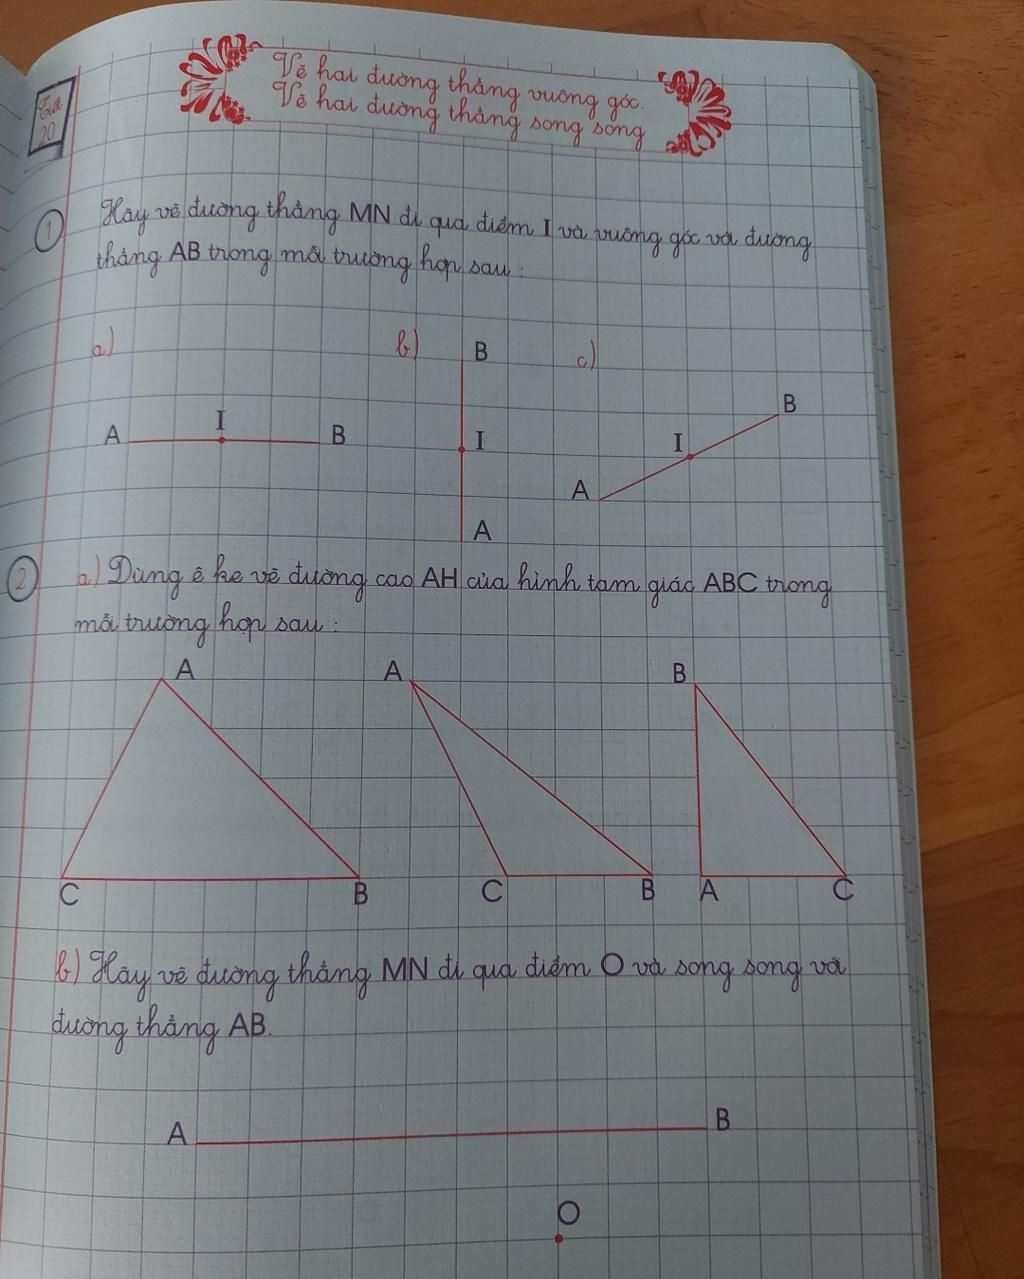 Vẽ hai đường thẳng vuông góc.
Vẽ hai đường thẳng song song
20
1 Hãy vẽ đường thẳng MN đi qua điểm I và vuông góc với đường
thẳng AB trong mỗi trường hợp sau :
a) b) c)
A I B
B I A
A I B
2 a) Dùng ê ke vẽ đường cao AH của hình tam giác ABC trong
mỗi trường hợp sau :
A A B
C B C B A C
b) Hãy vẽ đường thẳng MN đi qua điểm O và song song với
đường thẳng AB.
A B
O